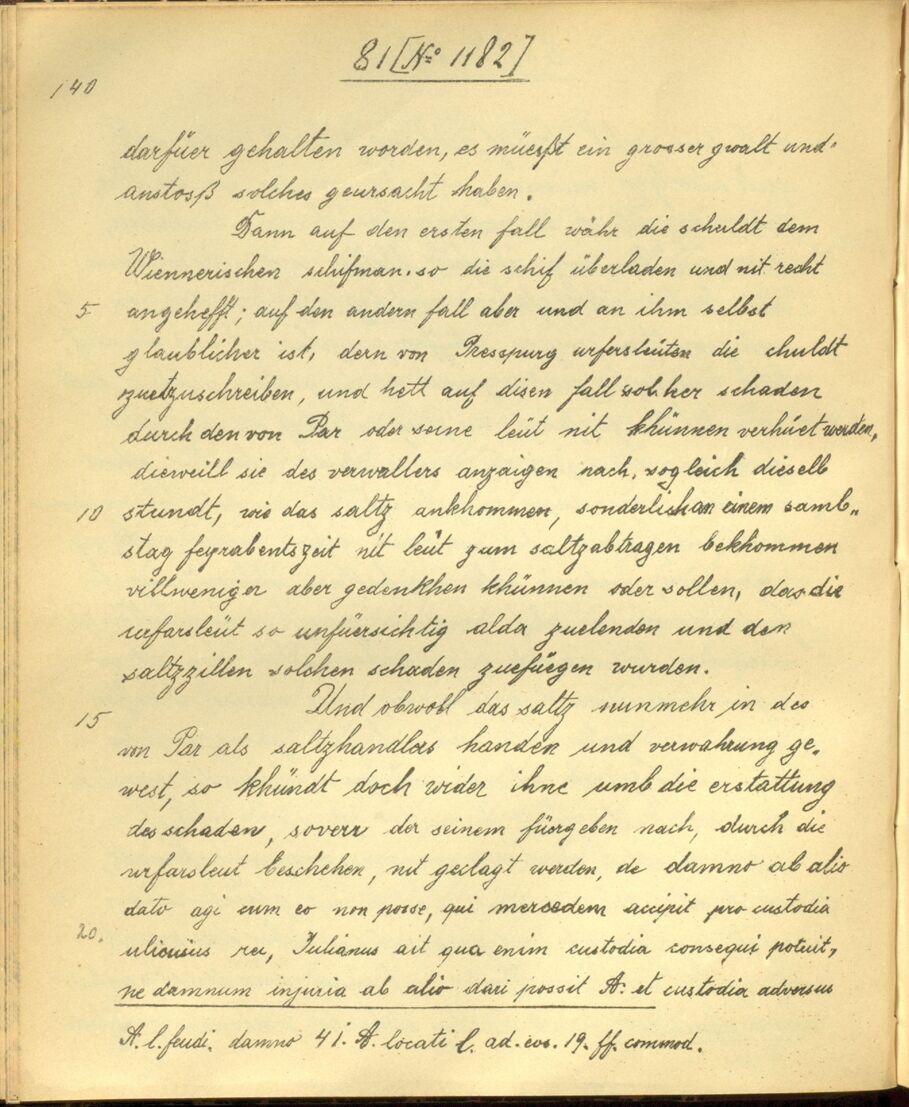 81 [No 1182]
140
darfüer gehalten worden, es müesßt ein grosser gwalt und
anstosß solches geursacht haben.
Dann auf den ersten fall währ die schuldt dem
Wiennerischen schifman. so die schif überladen und nit recht
5 angehefft; auf den andern fall aber und an ihm selbst
glaublicher ist, dern von Presspurg urfersleüten die chuldt
zuetzuschreiben, und hett auf disen fall solcher schaden
durch den von Par oder seine leüt nit khünnen verhüet werden,
dieweill sie des verwalters anzaigen nach, sogleich dieselb
10 stundt, wie das saltz ankhommen, sonderlich an einem samb„
stag feyrabentszeit nit leüt zum saltzabtragen bekhommen
villweniger aber gedenkhen khünnen oder sollen, das die
urfarsleüt so unfüersichtig alda zuelenden und den
saltzzillen solchen schaden zuefüegen wurden.
15 Und obwohl das saltz nunmehr in des
von Par als saltzhandlers handen und verwahrung ge„
west, so khündt doch wider ihne umb die erstattung
des schaden, soverr der seinem füergeben nach, durch die
urfarsleut beschehen, nit geclagt werden, de damno ab alio
dato agi cum eo non posse, qui mercedem accipit pro custodia
20. alicuius rei, Iulianus ait qua enim custodia consequi potuit,
ne damnum injuria ab alio dari possit A: et custodia adversus
A. l. feudi. damno 41. A. locati l. ad. eos. 19. ff. commod.